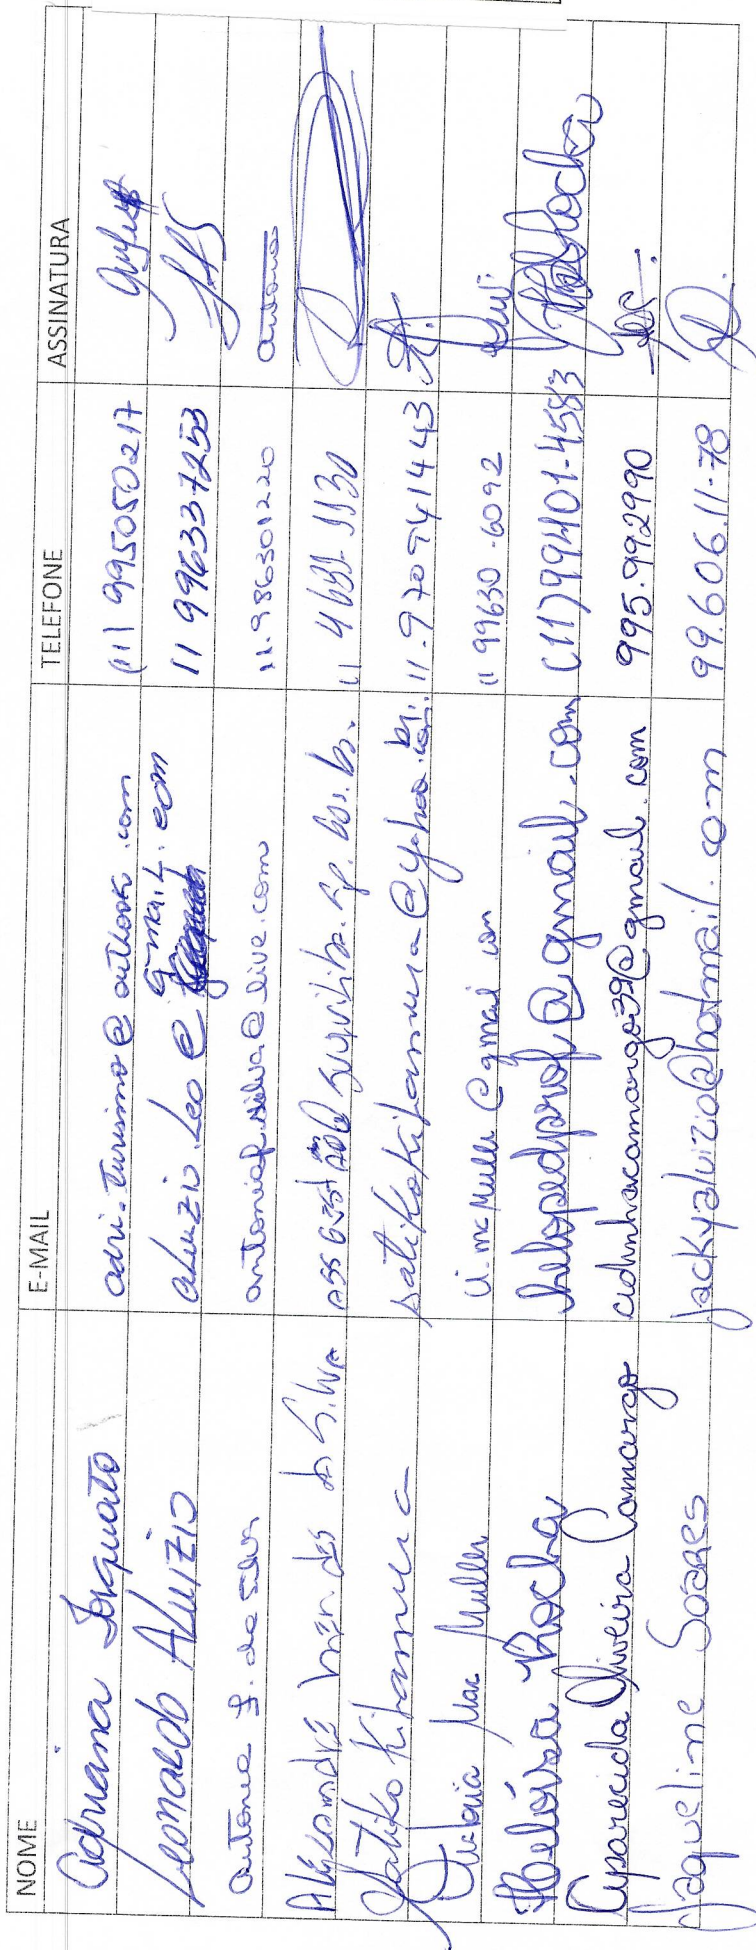 NOME E-MAIL TELEFONE ASSINATURA
Adriana Torquato adri.turismo@outlook.com (11) 995050217
Leonardo Aluizio aluizio.leo@gmail.com 11 996337253
Antonia F. da Silva antoniaf.silva@live.com 11.986301220
Alexandre Mendes da Silva 11
Satiko Kitamura satikokitamura@yahoo.com.br. 11.970941443
Mac Muller v.mcmuller@gmail.com 11 99630-6092
Heloísa Rocha helopedprof@gmail.com (11)99401-4583
Aparecida Oliveira Camargo cidinhacamargo39@gmail.com 995.992990
Jaqueline Soares jackyaluizio@hotmail.com 99.606.11-78